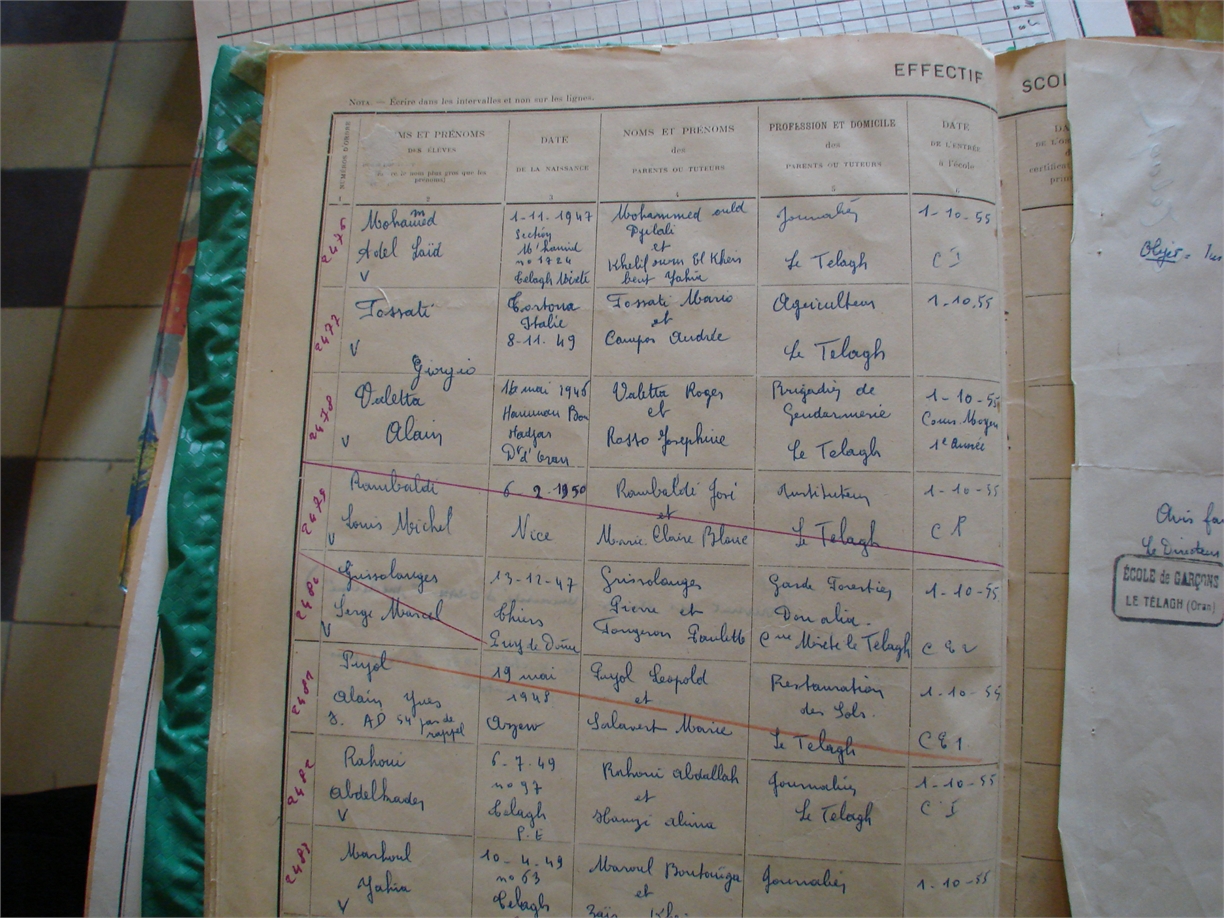 EFFECTIF
SCOL
NOTA. — Écrire dans les intervalles et non sur les lignes.
NUMÉROS D'ORDRE
MS ET PRÉNOMS
DES ÉLÈVES
le nom plus gros que les
prénoms)
DATE
DE LA NAISSANCE
NOMS ET PRÉNOMS
des
PARENTS OU TUTEURS
PROFESSION ET DOMICILE
des
PARENTS OU TUTEURS
DATE
DE L'ENTRÉE
à l'école
1
2
3
4
5
6
Mohamed
Adel Laïd
V
1-11-1947
Section
M'hamid
n° 1724
Telagh Mixte
Mohammed ould
Djilali
et
Khelif oum El Kheir
bent Yahia
Journalier
Le Telagh
1-10-55
C I
2477
Fossati
V
Giorgio
Tortona
Italie
8-11-49
Fossati Mario
et
Campos Andrée
Agriculteur
Le Telagh
1-10.55
2478
Valetta
V Alain
16 mai 1946
Hammam Bou
Hadjar
Dt d'Oran
Valetta Roger
et
Rosso Josephine
Brigadier de
Gendarmerie
Le Telagh
1-10-55
Cours Moyen
1e Année
2479
Rambaldi
Louis Michel
V
6-2-1950
Nice
Rambaldi José
et
Marie Claire Blanc
Instituteur
Le Telagh
1-10-55
C P
2480
Grissolanges
Serge Marcel
V
13-12-47
Thiers
Puy de Dôme
Grissolanges
Pierre et
Fougerou Paulette
Garde Forestier
Cne Mixte le Telagh
1-10-55
2481
Pujol
Alain Yves
AD 54 pas de
rappel
19 mai
1948
Arzew
Pujol Leopold
et
Salavert Marie
Restauration
des Sols.
Le Telagh
1-10-55
CE1
2482
Rahoui
Abdelkader
V
6-7-49
n° 97
Telagh
P.E
Rahoui Abdallah
et
Journalier
Le Telagh
1-10-55
C I
2483
Marhoul
Yahia
V
10-4-49
n° 63
Telagh
et
Journalier
1-10-55
Objet =
Avis fa
Le Directeur
ÉCOLE de GARÇONS
LE TÉLAGH (Oran)